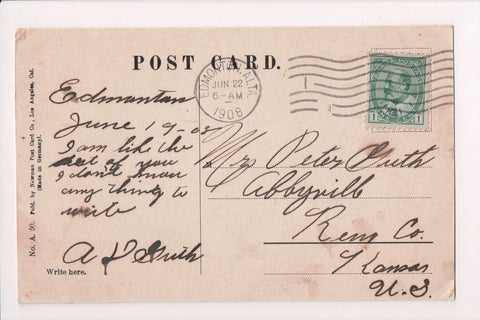 POST CARD.
EDMONTON, ALTA.
JUN 22
6-AM
1908
1 1
Edmontan
June 19-08
I am lik the
rest of you
I dont know
any thing to
write
A J Guth
Write here.
Mrs Peter Guth
Abbyvill
Reno Co.
Kansas
U.S.
No. A. 50. Publ. by Newman Post Card Co., Los Angeles, Cal.
(Made in Germany).